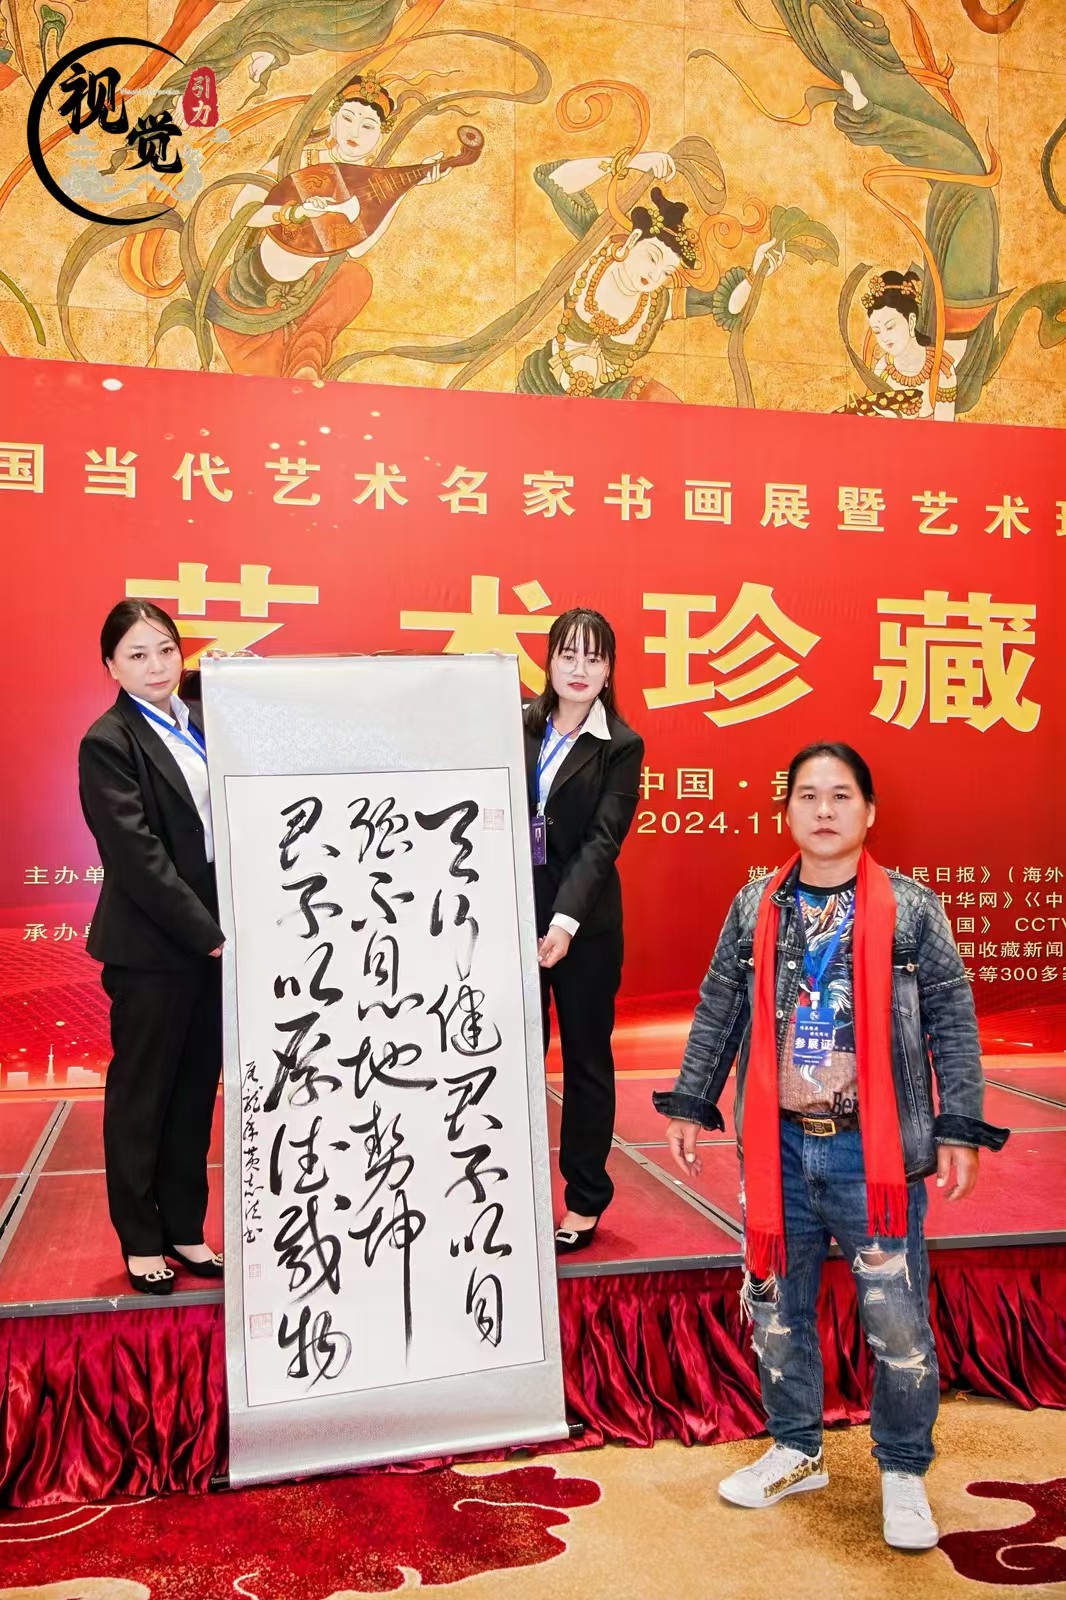 视觉
引力
国当代艺术名家书画展暨艺术
艺术珍藏
中国·贵
2024.11
主办单
承办单
人民日报》(海外
中华网》《中
国》 CCTV
国收藏新闻
条等300多
天行健君子以自
强不息地势坤
君子以厚德载物
黄志法书
参展证